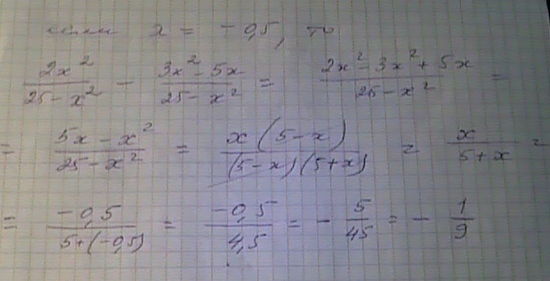 если x = -0,5, то
2x²/(25-x²) - (3x²-5x)/(25-x²) = (2x²-3x²+5x)/(25-x²) =
= (5x-x²)/(25-x²) = x(5-x)/((5-x)(5+x)) = x/(5+x) =
= -0,5/(5+(-0,5)) = -0,5/4,5 = -5/45 = -1/9